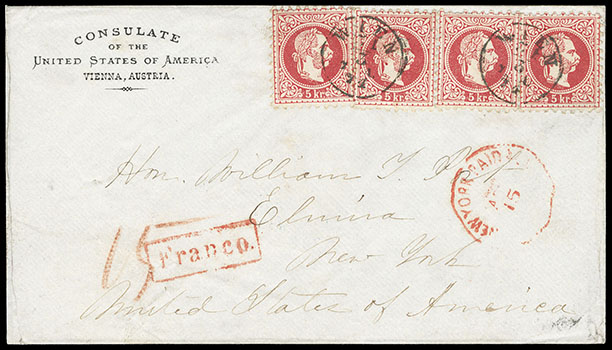 CONSULATE
OF THE
UNITED STATES OF AMERICA
VIENNA, AUSTRIA.
5 kr. 5 kr. 5 kr. 5 kr.
WIEN WIEN
Hon. William T. Post
NEW YORK PAID ALL
15
Elmira
15
Franco.
New York
United States of America